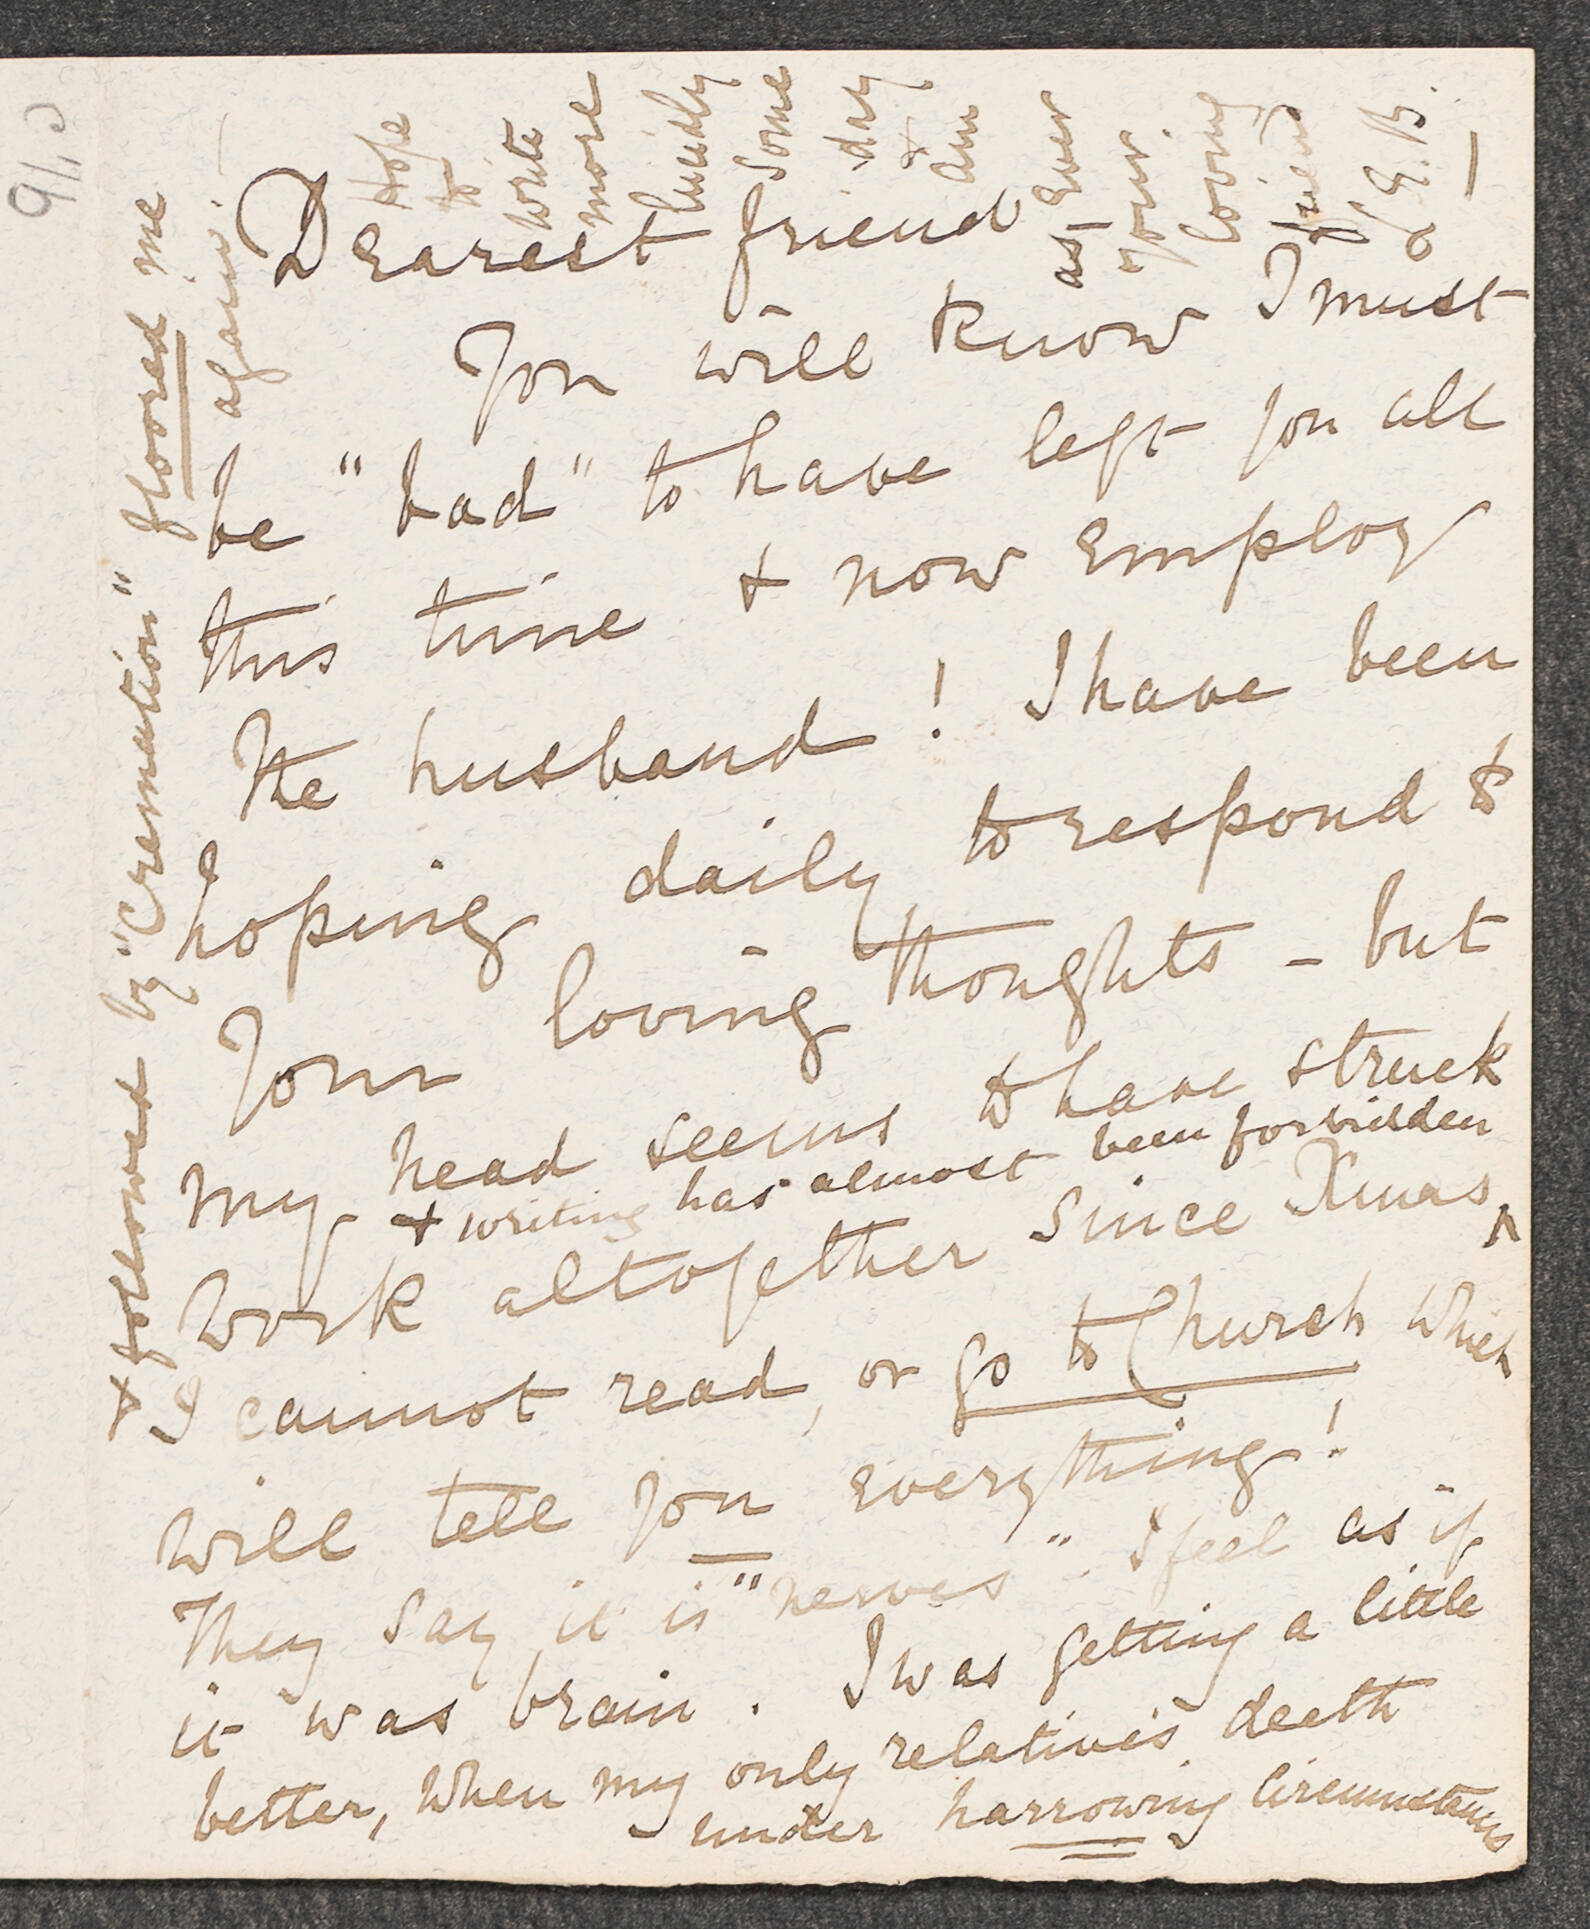 Dearest friend
You will know I must
be "bad" to have left you all
this time & now employ
the husband! I have been
hoping daily to respond to
your loving thoughts - but
my head seems to have struck
& writing has almost been forbidden
work altogether since Xmas ^
I cannot read, or go to Church which
will tell you everything!
They say it is "nerves". I feel as if
it was brain. I was getting a little
better, when my only relative's death
under harrowing circumstances
& followed by "Cremation" floored me
again -
Hope
to
write
more
lucidly
some
day
&
am
as ever
your
loving
friend
E.B.